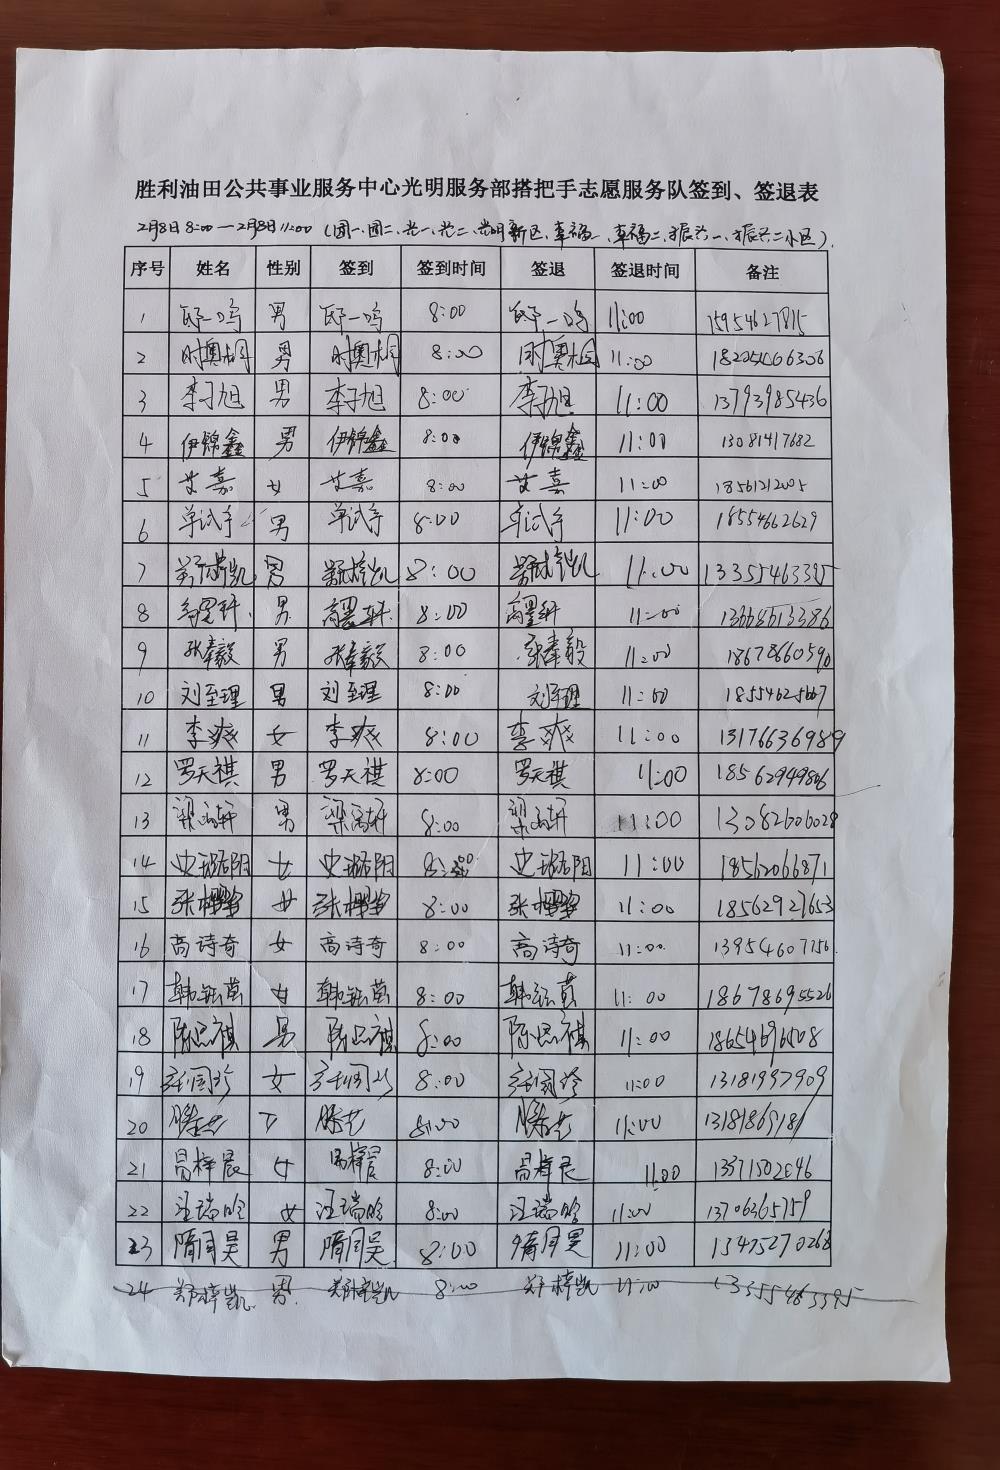 胜利油田公共事业服务中心光明服务部搭把手志愿服务队签到、签退表
2月8日 8:00—2月8日 11:00 (园一、园二、光一、光二、光明新区、幸福一、幸福二、振兴一、振兴二小区)
序号 姓名 性别 签到 签到时间 签退 签退时间 备注
1 邸一鸣 男 邸一鸣 8:00 邸一鸣 11:00 15954627815
2 时奥桐 男 时奥桐 8:00 时奥桐 11:00
3 李子旭 男 李子旭 8:00 李子旭 11:00 13793985436
4 伊锦鑫 男 伊锦鑫 8:00 伊锦鑫 11:00 13081417682
5 艾嘉 女 艾嘉 8:00 艾嘉 11:00 18561212005
6 单试予 男 单试予 8:00 单试予 11:00 18554662629
7 郑梓凯 男 郑梓凯 8:00 郑梓凯 11:00 13355463395
8 高墨轩 男 高墨轩 8:00 高墨轩 11:00 13668613386
9 张奉毅 男 张奉毅 8:00 张奉毅 11:00 18678660590
10 刘至理 男 刘至理 8:00 刘至理 11:00 18554625667
11 李爽 女 李爽 8:00 李爽 11:00 13176636989
12 罗天祺 男 罗天祺 8:00 罗天祺 11:00 18562949806
13 男 8:00 11:00 13082606028
14 史璐阳 女 史璐阳 8:00 史璐阳 11:00 18562066871
15 女 8:00 11:00 18562927653
16 高诗奇 女 高诗奇 8:00 高诗奇 11:00 13954607756
17 韩钰萱 女 韩钰萱 8:00 韩钰萱 11:00 18678695526
18 陈思祺 男 陈思祺 8:00 陈思祺 11:00 18654696508
19 女 8:00 11:00 13181997909
20 滕艺 女 滕艺 8:00 滕艺 11:00 13181869181
21 昌梓晨 女 昌梓晨 8:00 昌梓晨 11:00 13371502646
22 汪瑞晗 女 汪瑞晗 8:00 汪瑞晗 11:00 13706365759
23 隋同昊 男 隋同昊 8:00 隋同昊 11:00 15475270268
24 郑梓凯 男 郑梓凯 8:00 郑梓凯 11:00 13355463395